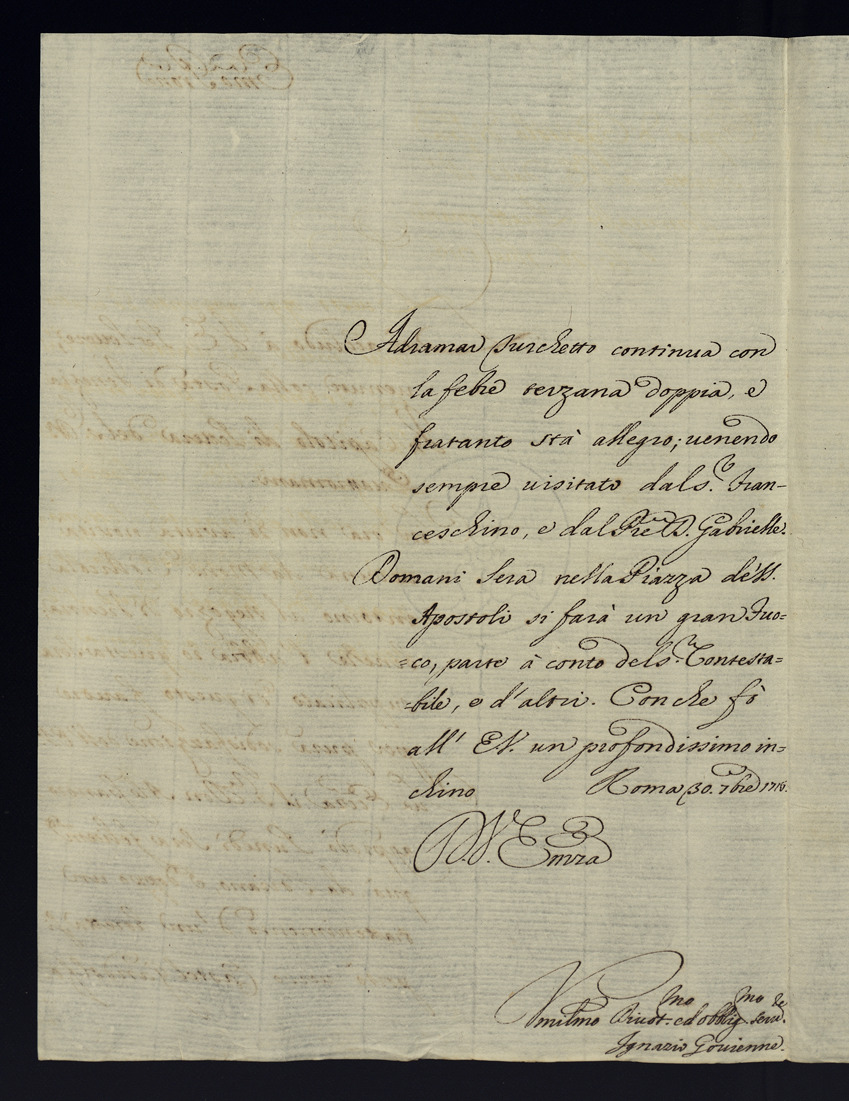 Adramar Turchetto continua con
la febre terzana doppia, e
fratanto stà allegro; uenendo
sempre uisitato dal s.r Fran-
ceschino, e dal P're D. Gabrielle.
Domani sera nella Piazza de SS.
Apostoli si farà un gran Fuo=
=co, parte à conto del s.r Contesta=
=bile, e d'altri. Con che fò
all' E.V. un profondissimo in=
chino Roma 30. 7bre 1716.
D. V. Emza
Vmilmo Diuot.mo ed obblig.mo seru.re
Ignazio